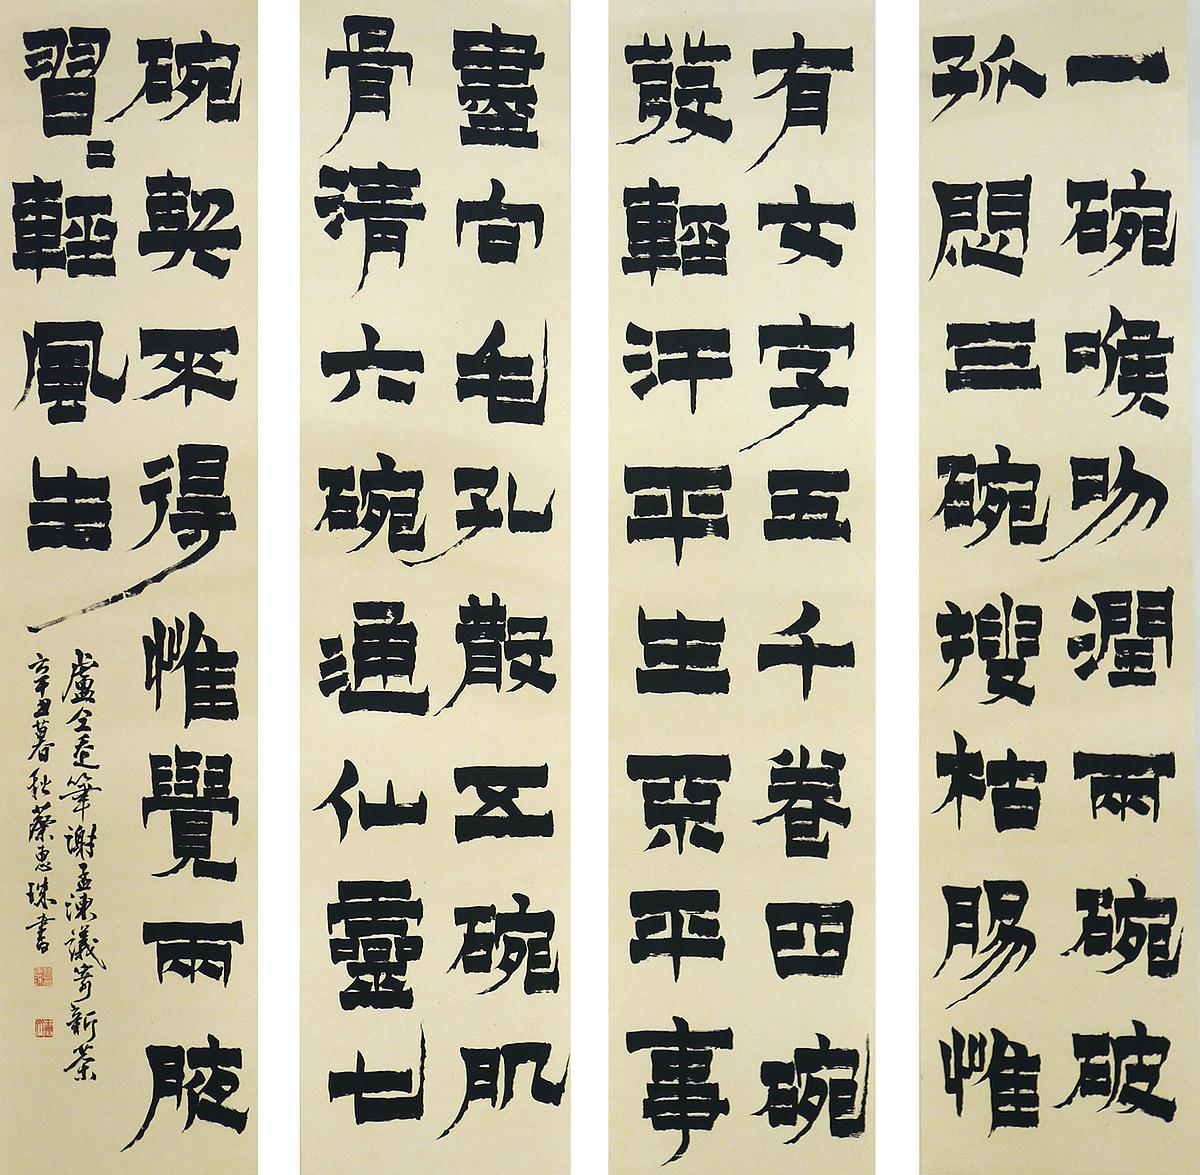 一碗喉吻潤兩碗破
孤悶三碗搜枯腸惟
有文字五千卷四碗
發輕汗平生不平事
盡向毛孔散五碗肌
骨清六碗通仙靈七
碗喫不得惟覺兩腋
習〻輕風生
盧仝走筆謝孟諫議寄新茶
辛丑暮秋蔡惠珠書